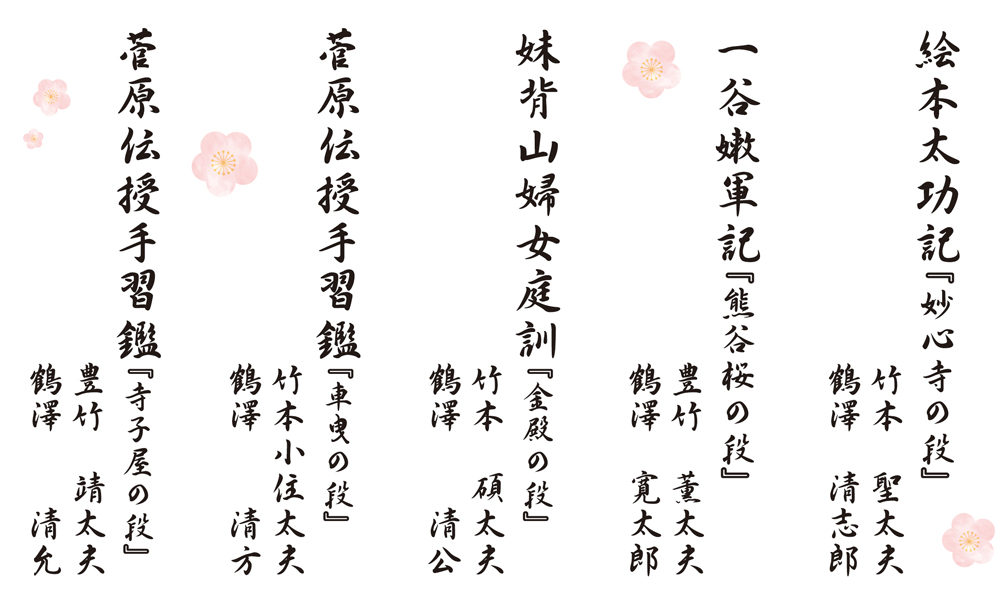 絵本太功記『妙心寺の段』
竹本 聖太夫
鶴澤 清志郎
一谷嫩軍記『熊谷桜の段』
豊竹 薫太夫
鶴澤 寛太郎
妹背山婦女庭訓『金殿の段』
竹本 碩太夫
鶴澤 清公
菅原伝授手習鑑『車曳の段』
竹本小住太夫
鶴澤 清方
菅原伝授手習鑑『寺子屋の段』
豊竹 靖太夫
鶴澤 清允